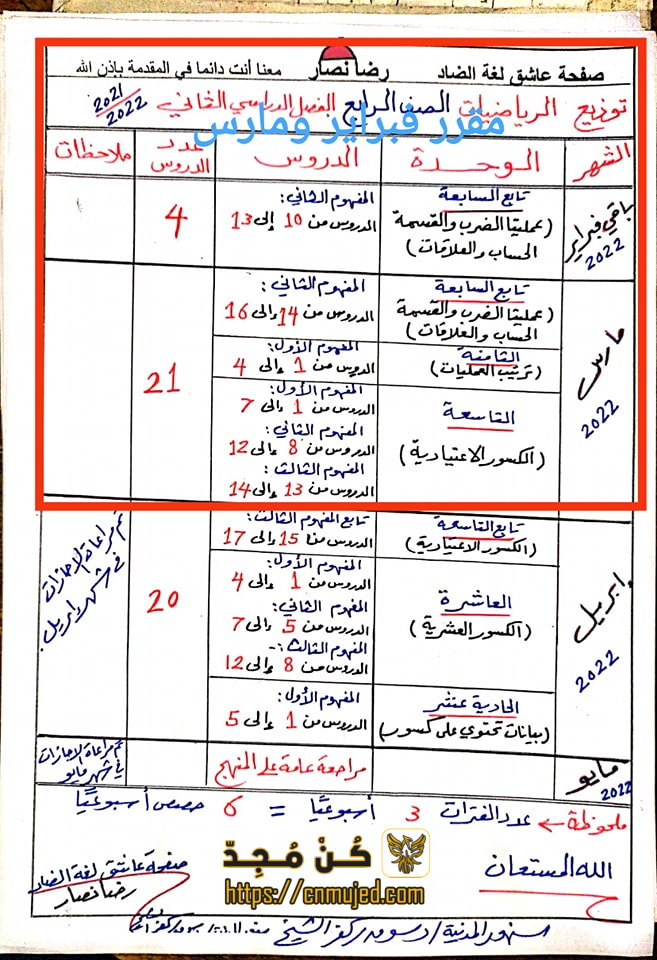 صفحة عاشق لغة الضاد رضا نصار معنا أنت دائما في المقدمة بإذن الله
توزيع الرياضيات الصف الرابع الفصل الدراسي الثاني 2021/2022
مقرر فبراير ومارس
الشهر الوحدة الدروس عدد الدروس ملاحظات
باقي فبراير 2022
تابع السابعة
(عمليتا الضرب والقسمة
الحساب والعلاقات)
المفهوم الثاني:
الدروس من 10 إلى 13
4
مارس 2022
تابع السابعة
(عمليتا الضرب والقسمة
الحساب والعلاقات)
المفهوم الثاني:
الدروس من 14 وإلى 16
الثامنة
(ترتيب العمليات)
المفهوم الأول:
الدروس من 1 وإلى 4
التاسعة
(الكسور الاعتيادية)
المفهوم الأول:
الدروس من 1 وإلى 7
المفهوم الثاني:
الدروس من 8 وإلى 12
المفهوم الثالث:
الدروس من 13 وإلى 14
21
إبريل 2022
تابع التاسعة
(الكسور الاعتيادية)
تابع المفهوم الثالث:
الدروس من 15 وإلى 17
العاشرة
(الكسور العشرية)
المفهوم الأول:
الدروس من 1 وإلى 4
المفهوم الثاني:
الدروس من 5 وإلى 7
المفهوم الثالث:-
الدروس من 8 وإلى 12
الحادية عشر
(بيانات تحتوي على كسور)
المفهوم الأول:
الدروس من 1 وإلى 5
20
تم مراعاة الإجازات
في شهر إبريل.
مايو 2022
مراجعة عامة على المنهج
تم مراعاة الإجازات
في شهر مايو
ملحوظة ← عدد الفترات 3 أسبوعيًا = 6 حصص أسبوعيًا
كُنْ مُجِدّ
https://cnmujed.com
الله المستعان
صفحة عاشق لغة الضاد
رضا نصار
سنهور المدينة / دسوق / كفر الشيخ